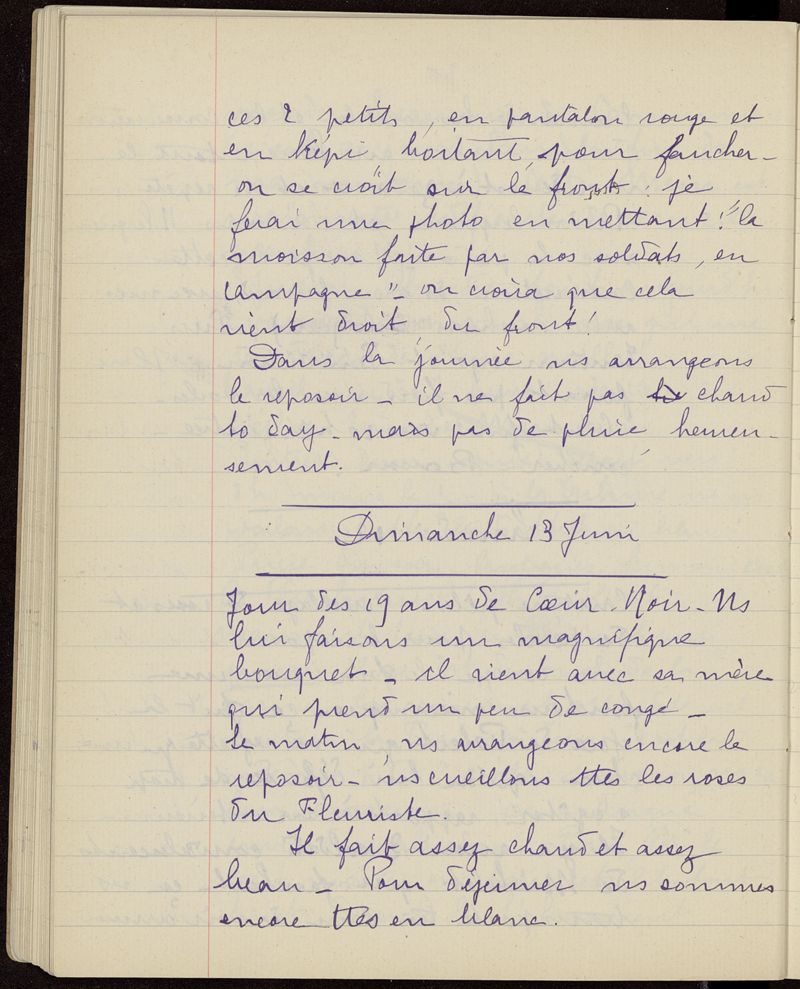 ces 2 petits, en pantalon rouge et
en képi boitant, pour faucher -
on se croit sur le front : je
ferai une photo en mettant : "la
moisson faite par nos soldats, en
campagne" - on croira que cela
vient droit du front !
Dans la journée ns arrangeons
le reposoir - il ne fait pas chaud
to day - mais pas de pluie, heureu-
sement.
Dimanche 13 Juin
Jour des 19 ans de Cœur-Noir - Ns
lui faisons un magnifique
bouquet - il vient avec sa mère
qui prend un peu de congé -
Le matin, ns arrangeons encore le
reposoir - ns cueillons ttes les roses
du Fleuriste.
Il fait assez chaud et assez
beau - Pour déjeuner ns sommes
encore ttes en blanc.